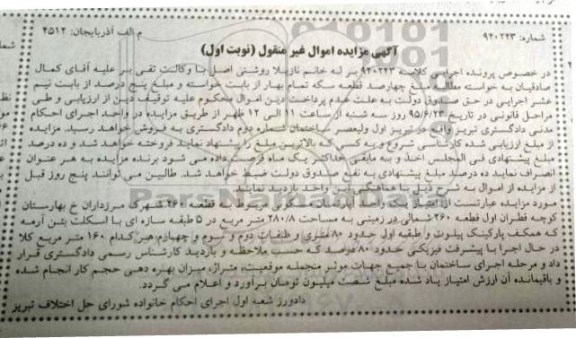 شماره: ۹۴۰۲۲۳
م الف آذربایجان: ۴۵۱۲
آگهی مزایده اموال غیر منقول (نوبت اول)
در خصوص پرونده اجرایی کلاسه ۹۴۰۲۲۳ له خانم نازیلا روشنی اصل با وکالت تقی بر علیه آقای کمال
صادقیان به خواسته مطالبه مبلغ چهارصد قطعه سکه تمام بهار از بابت خواسته و مبلغ پنج درصد از بابت نیم
عشر اجرایی در حق صندوق دولت به علت عدم پرداخت دین اموال محکوم علیه توقیف دین از ارزیابی و طی
مراحل قانونی در تاریخ ۹۵/۶/۲۳ روز سه شنبه از ساعت ۱۱ الی ۱۲ ظهر از طریق مزایده در واحد اجرای احکام
مدنی دادگستری تبریز واقع در تبریز اول ولیعصر ساختمان شماره دوم دادگستری به فروش خواهد رسید. مزایده
از مبلغ ارزیابی شده کارشناسی شروع و به کسی که بالاترین مبلغ را پیشنهاد نمایند فروخته خواهد شد و ده درصد
مبلغ پیشنهادی فی المجلس اخذ و به مابقی حداکثر یک ماه فرصت داده می شود برنده مزایده به هر عنوان
انصراف نماید ده درصد مبلغ پیشنهادی به نفع صندوق دولت ضبط خواهد شد. طالبین می توانند پنج روز قبل
از مزایده از اموال به شرح ذیل با هماهنگی این واحد بازدید نمایند.
مورد مزایده عبارتست از مربوط به قطعه ۲۶۰ شهرک مرزداران خ بهارستان
کوچه قطران اول قطعه ۲۶۰ شمالی در زمینی به مساحت ۲۸۰/۸ متر مربع در ۵ طبقه سازه ای با اسکلت بتن آرمه
که همکف پارکینگ پیلوت و طبقه اول حدود ۸۰ متری و طبقات دوم و سوم و چهارم هر کدام ۱۶۰ متر مربع کلا
در حال اجرا با پیشرفت فیزیکی حدود ۸۰ درصد که حسب ملاحظه و بازدید کارشناس رسمی دادگستری قرار
داد و مرحله اجرای ساختمان با جمیع جهات موثر منجمله موقعیت، متراژ، میزان بهره دهی حجم کار انجام شده
و باقیمانده آن ارزش امتیاز یاد شده مبلغ شصت میلیون تومان برآورد و اعلام می گردد.
دادورز شعبه اول اجرای احکام خانواده شورای حل اختلاف تبریز